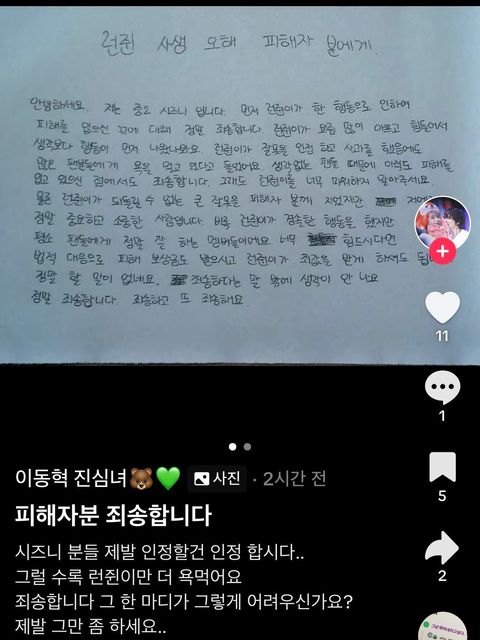 런쥔 사생 오해 피해자 분에게.
안녕하세요. 저는 중2 시즈니 입니다. 먼저 런쥔이가 한 행동으로 인하여
피해를 입으신 것에 대해 정말 죄송합니다. 런쥔이가 요즘 많이 아프고 힘들어서
생각보다 행동이 먼저 나왔나봐요. 런쥔이가 잘못을 인정 하고 사과를 했음에도
많은 팬분들에게 욕을 먹고 있다고 들었어요. 생각없는 팬들 때문에 아직도 피해를
입고 있으신 점에서도 죄송합니다. 그래도 런쥔이를 너무 미워하지 말아주세요.
물론 런쥔이가 되돌릴 수 없는 큰 잘못을 피해자 분께 지었지만 저에겐
정말 중요하고 소중한 사람입니다. 비록 런쥔이가 경솔한 행동을 했지만
평소 팬들에게 정말 잘 하는 멤버들이에요. 너무 힘드시다면
법적 대응으로 피해 보상금도 받으시고 런쥔이가 죄값을 받게 하셔도 됩니
정말 할 말이 없네요. 죄송하다는 말 밖에 생각이 안 나요
정말 죄송합니다. 죄송하고 또 죄송해요.
11
1
5
2
이동혁 진심녀🐻💚 사진 · 2시간 전
피해자분 죄송합니다
시즈니 분들 제발 인정할건 인정 합시다..
그럴 수록 런쥔이만 더 욕먹어요
죄송합니다 그 한 마디가 그렇게 어려우신가요?
제발 그만 좀 하세요..